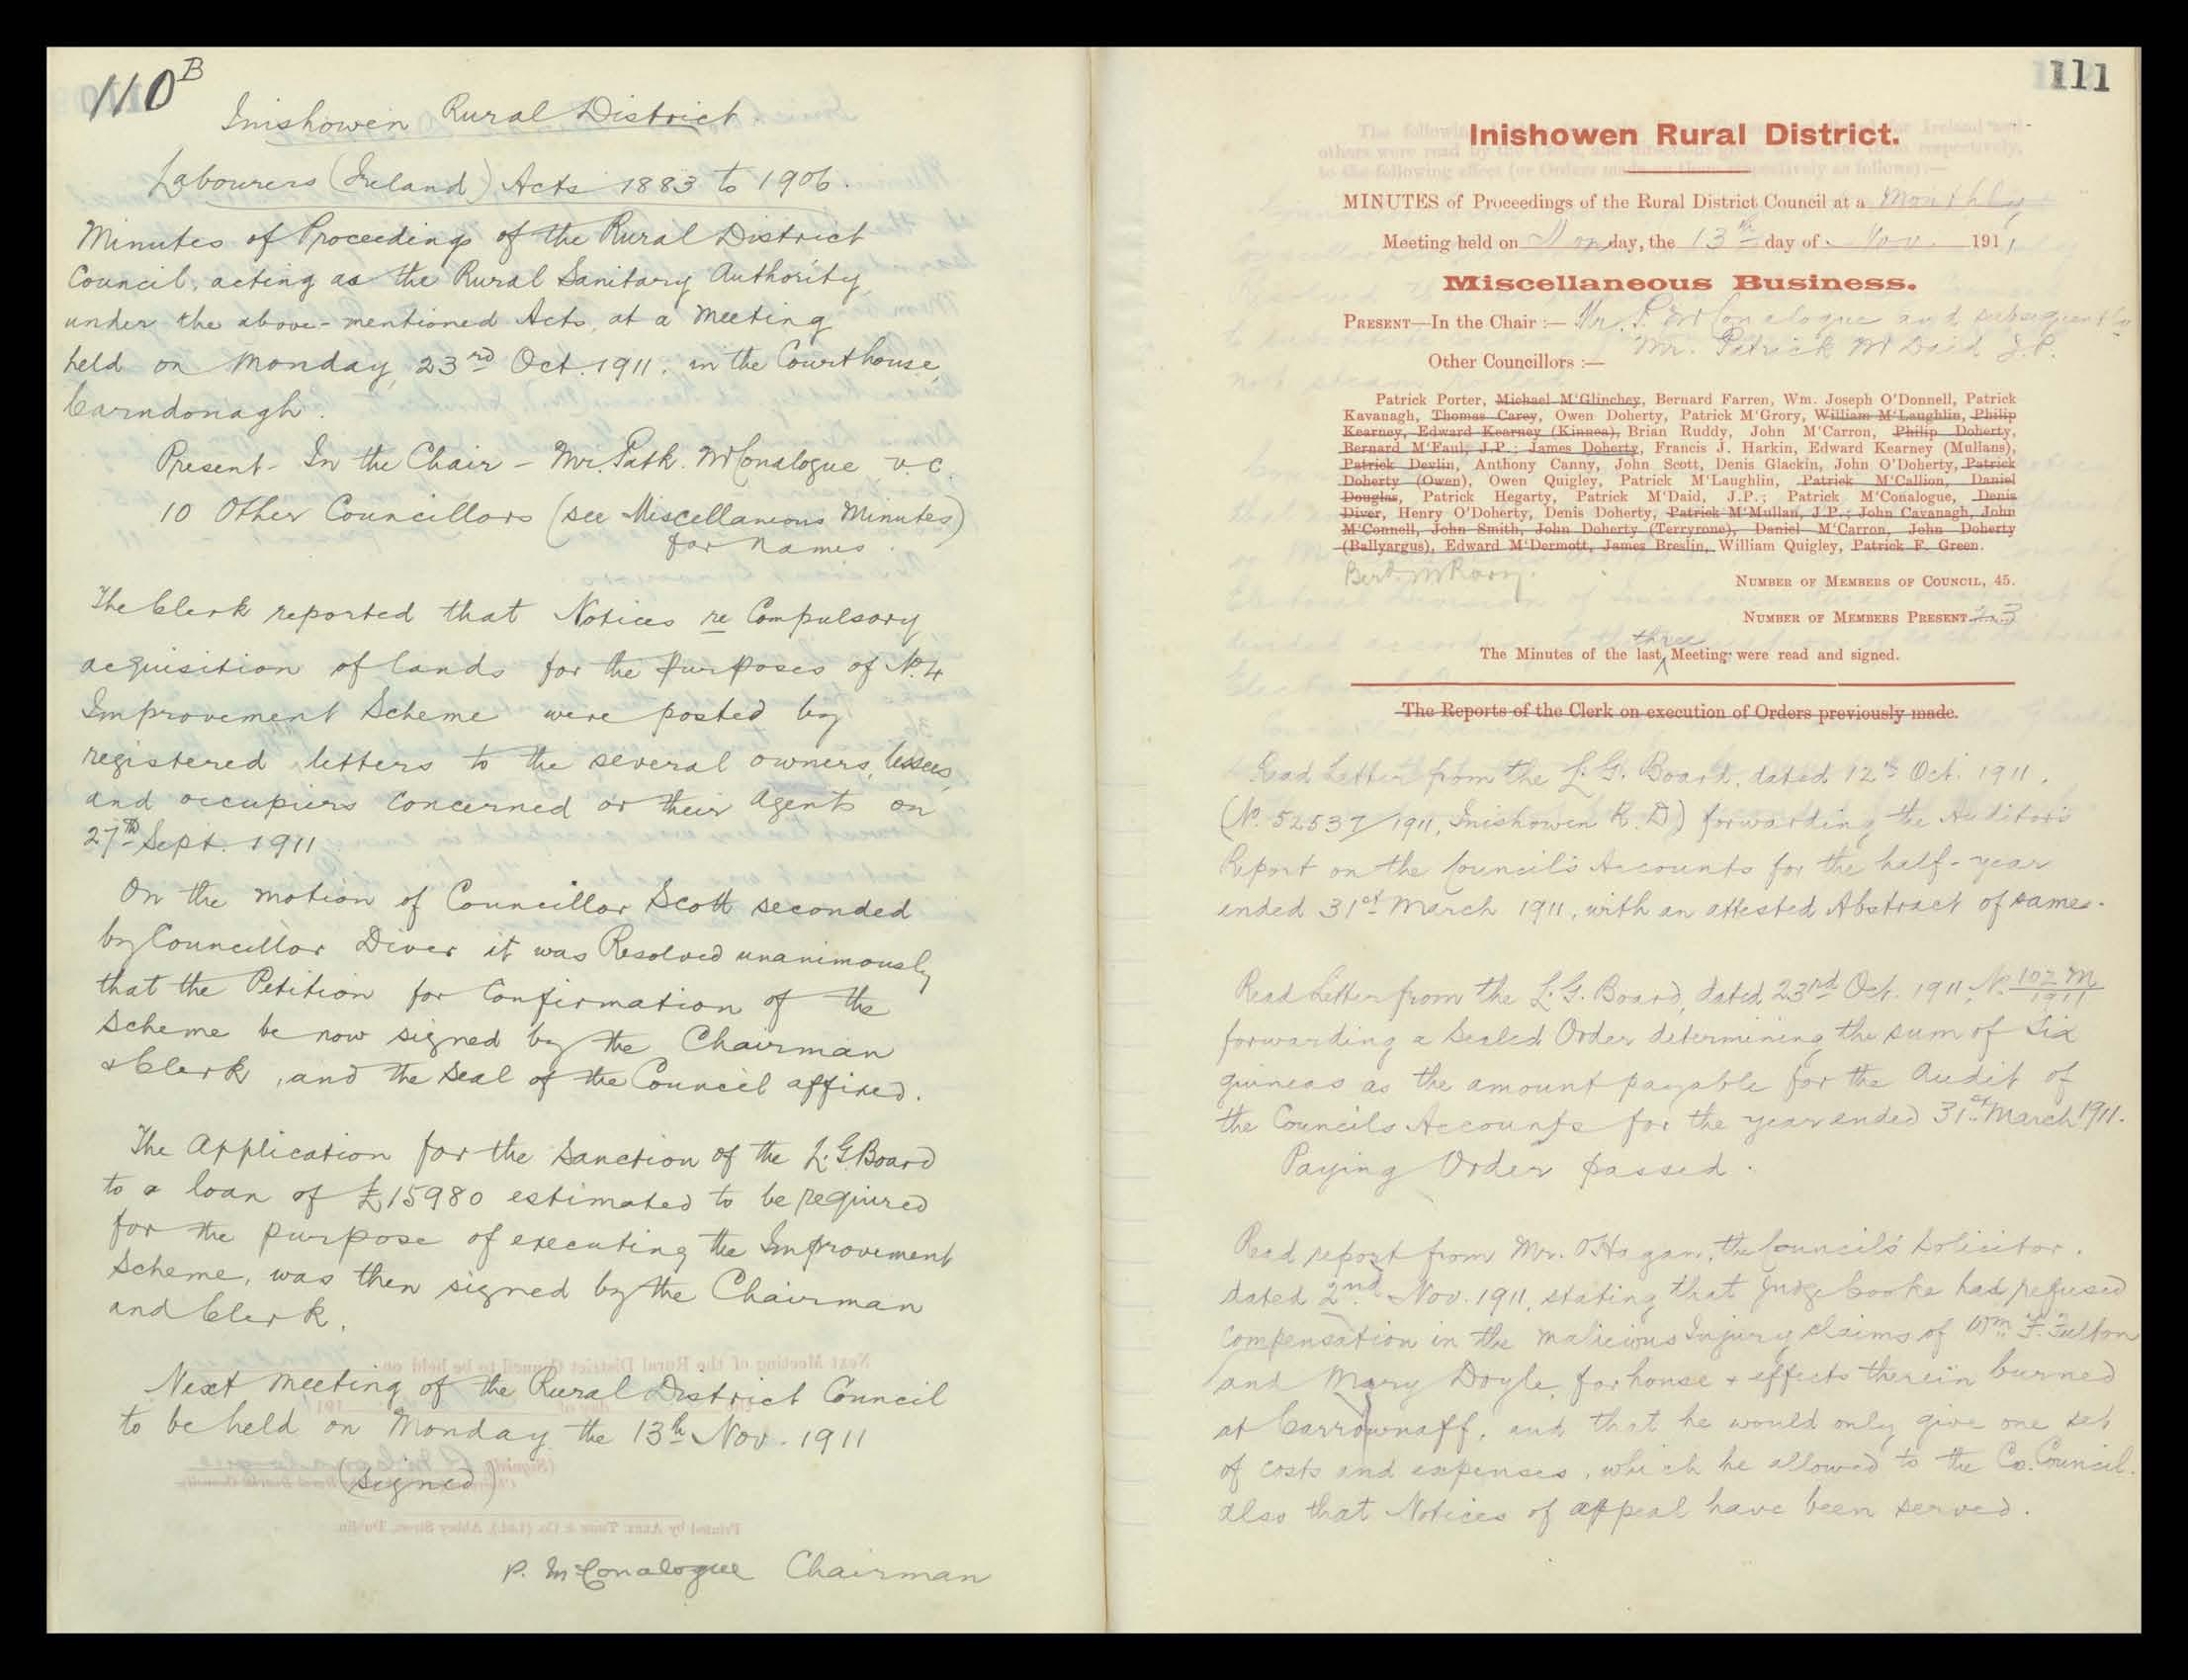 110B
Inishowen Rural District
Labourers (Ireland) Acts 1883 to 1906.
Minutes of Proceedings of the Rural District
Council, acting as the Rural Sanitary Authority
under the above-mentioned Acts, at a Meeting
held on Monday, 23rd Oct. 1911. in the Courthouse,
Carndonagh.
Present - In the Chair - Mr. Patk. McConalogue V.C.
10 Other Councillors (see Miscellaneous Minutes)
for names.
The Clerk reported that Notices re Compulsory
acquisition of lands for the purposes of No. 4
Improvement Scheme were posted by
registered letters to the several owners, lessees,
and occupiers concerned or their Agents on
27th Sept. 1911
On the motion of Councillor Scott seconded
by Councillor Diver it was Resolved unanimously
that the Petition for Confirmation of the
Scheme be now signed by the Chairman
& Clerk, and the Seal of the Council affixed.
The Application for the Sanction of the L.G. Board
to a loan of £15980 estimated to be required
for the purpose of executing the Improvement
Scheme, was then signed by the Chairman
and Clerk.
Next meeting of the Rural District Council
to be held on Monday the 13th Nov. 1911
(signed)
P. McConalogue Chairman
111
Inishowen Rural District.
MINUTES of Proceedings of the Rural District Council at a Monthly
Meeting held on Monday, the 13th day of Nov. 1911
Miscellaneous Business.
PRESENT—In the Chair :— Mr. P. McConalogue and subsequently
Mr. Patrick McDaid J.P.
Other Councillors :—
Patrick Porter, Michael M'Glinchey, Bernard Farren, Wm. Joseph O'Donnell, Patrick
Kavanagh, Thomas Carey, Owen Doherty, Patrick M'Grory, William M'Laughlin, Philip
Kearney, Edward Kearney (Kinnea), Brian Ruddy, John M'Carron, Philip Doherty,
Bernard M'Faul, J.P.; James Doherty, Francis J. Harkin, Edward Kearney (Mullans),
Patrick Devlin, Anthony Canny, John Scott, Denis Glackin, John O'Doherty, Patrick
Doherty (Owen), Owen Quigley, Patrick M'Laughlin, Patrick M'Callion, Daniel
Douglas, Patrick Hegarty, Patrick M'Daid, J.P.; Patrick M'Conalogue, Denis
Diver, Henry O'Doherty, Denis Doherty, Patrick M'Mullan, J.P.; John Cavanagh, John
M'Connell, John Smith, John Doherty (Terryrone), Daniel M'Carron, John Doherty
(Ballyargus), Edward M'Dermott, James Breslin, William Quigley, Patrick F. Green.
Berd. McRory.
NUMBER OF MEMBERS OF COUNCIL, 45.
NUMBER OF MEMBERS PRESENT 23
three
The Minutes of the last Meeting were read and signed.
The Reports of the Clerk on execution of Orders previously made.
Read Letter from the L.G. Board, dated 12th Oct. 1911.
(No. 52537/1911, Inishowen R.D) forwarding the Auditor's
Report on the Council's Accounts for the half-year
ended 31st March 1911, with an attested Abstract of same.
Read Letter from the L.G. Board, dated 23rd Oct. 1911, No. 107 M/1911
forwarding a Sealed Order determining the sum of Six
guineas as the amount payable for the Audit of
the Councils Accounts for the year ended 31st March 1911.
Paying Order passed.
Read report from Mr. O'Hagan, the Council's Solicitor.
dated 2nd Nov. 1911, stating that Judge Cooke had refused
Compensation in the malicious Injury claims of Wm. F. Fulton
and Mary Doyle, for house & effects therein burned
at Carrownaff, and that he would only give one set
of costs and expenses, which he allowed to the Co. Council.
also that Notices of appeal have been served.